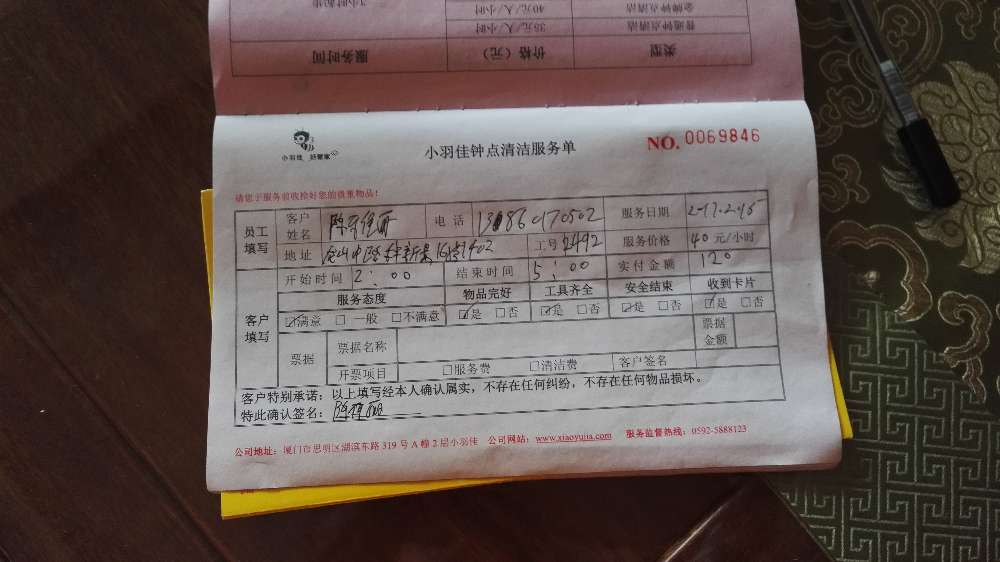 3小时起步
金牌钟点清洁 40元/人/小时
普通钟点清洁 35元/人/小时
类型 价格（元） 服务时间
小羽佳 好管家
小羽佳钟点清洁服务单
NO. 0069846
请您于服务前收检好您的贵重物品！
员工填写 客户姓名 陈 电话 服务日期
地址 工号 2492 服务价格 40元/小时
开始时间 2：00 结束时间 5：00 实付金额 120
客户填写 服务态度 物品完好 工具齐全 安全结束 收到卡片
☑满意 □一般 □不满意 ☑是 □否 ☑是 □否 ☑是 □否 ☑是 □否
票据 票据名称 票据金额
开票项目 □服务费 □清洁费 客户签名
客户特别承诺：以上填写经本人确认属实，不存在任何纠纷，不存在任何物品损坏。
特此确认签名：陈
公司地址：厦门市思明区湖滨东路319号A幢2层小羽佳 公司网站：www.xiaoyujia.com 服务监督热线：0592-5888123